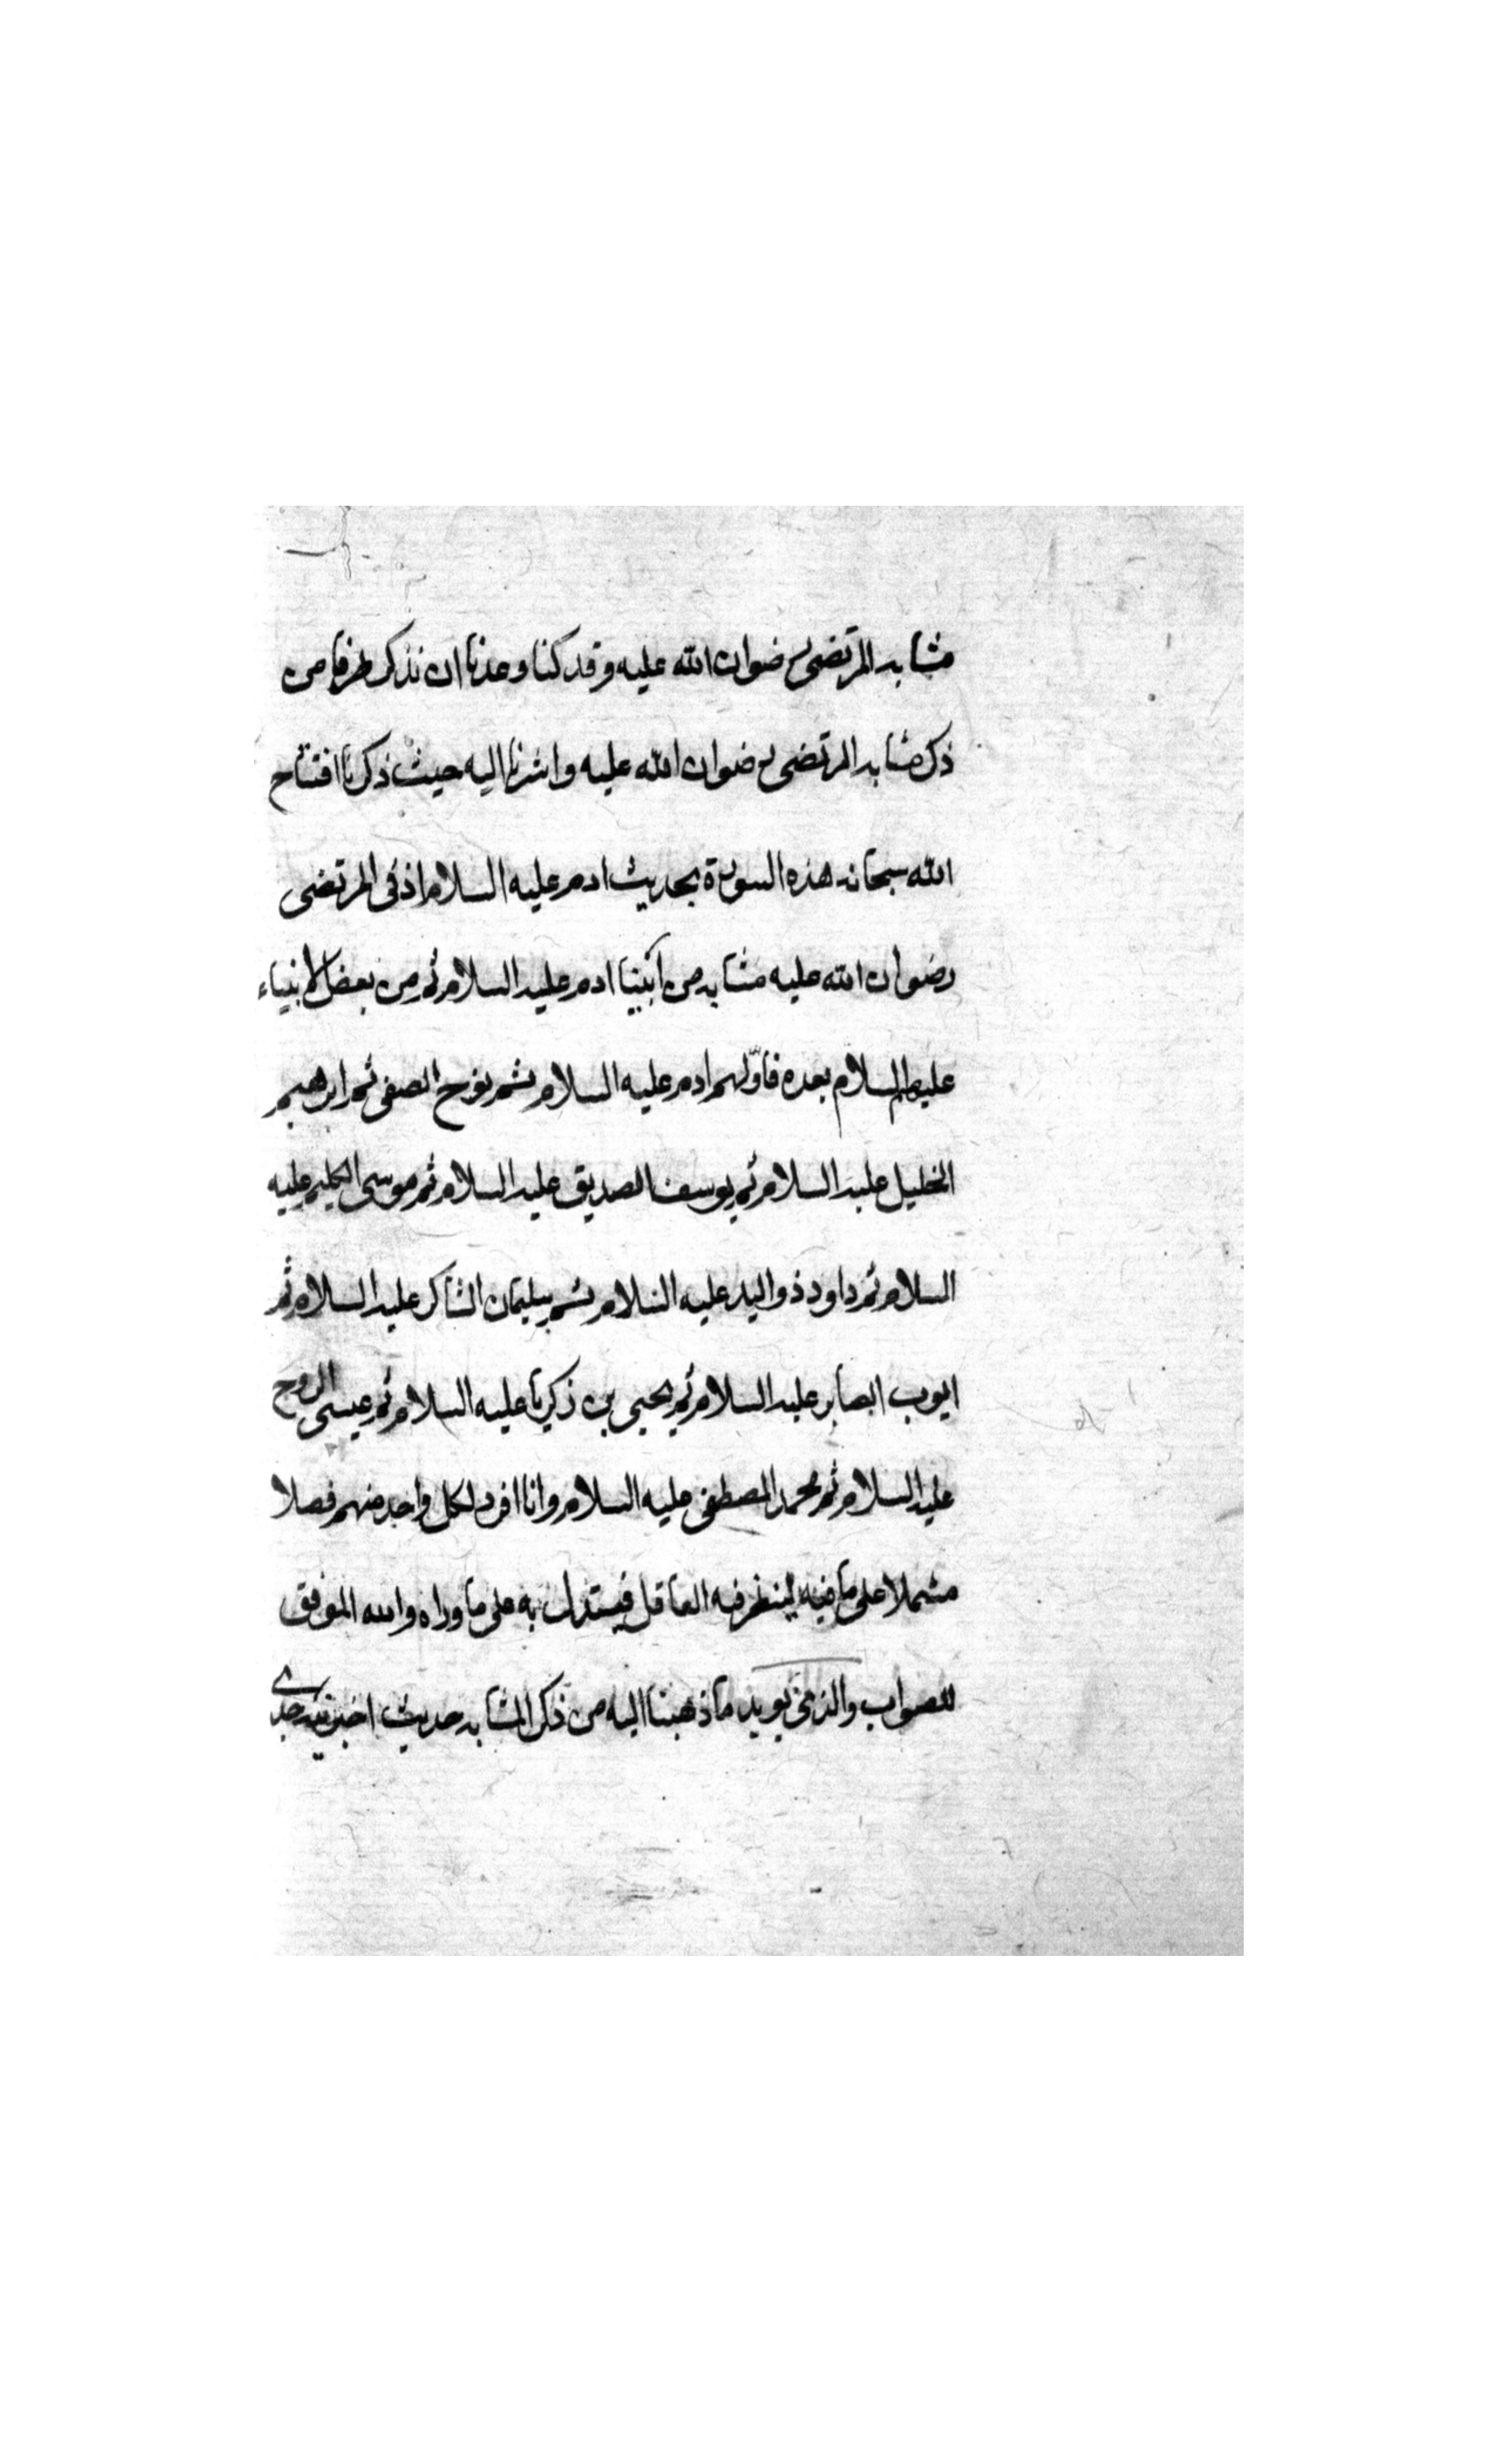 مشابه المرتضى رضوان الله عليه وقد كنا وعدنا ان نذكر طرفا من
ذكر مشابه المرتضى رضوان الله عليه واشرنا اليه حيث ذكرنا افتتاح
الله سبحانه هذه السورة بحديث ادم عليه السلام اذ فى المرتضى
رضوان الله عليه مشابه من ابينا ادم عليه السلام ثم من بعض الانبياء
عليهم السلام بعده فاوّلهم ادم عليه السلام ثم نوح الصفى ثم ابرهيم
الخليل عليه السلام ثم يوسف الصديق عليه السلام ثم موسى الكليم عليه
السلام ثم داود ذو اليد عليه السلام ثم سليمان الشاكر عليه السلام ثم
ايوب الصابر عليه السلام ثم يحيى بن زكريا عليه السلام ثم عيسى الروح
عليه السلام ثم محمد المصطفى عليه السلام وانا افرد لكل واحد منهم فصلا
مشملا على ما فيه لينظر فيه العاقل فيستدل به على ما وراه والله الموفق
للصواب والذى يويد ما ذهبنا اليه من ذكر المشابه حديث اخبرنيه جدى